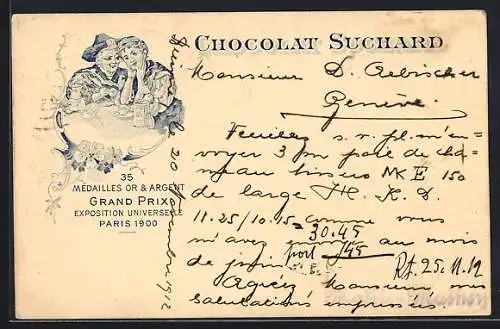 CHOCOLAT SUCHARD
35
MÉDAILLES OR & ARGENT
GRAND PRIX
EXPOSITION UNIVERSELLE
PARIS 1900
le 20 Novembre 1912
Monsieur D. Aebischer
Genève.
Veuillez s. v. pl. m'en-
voyer 3 m poil de cha-
meau NK E 150
de large M. K. D.
11.25/10.15 comme vous
30.45
m'avez au mois
de juin. port
Rf. 25.11.12
Agréez Monsieur mes
salutations empressées.